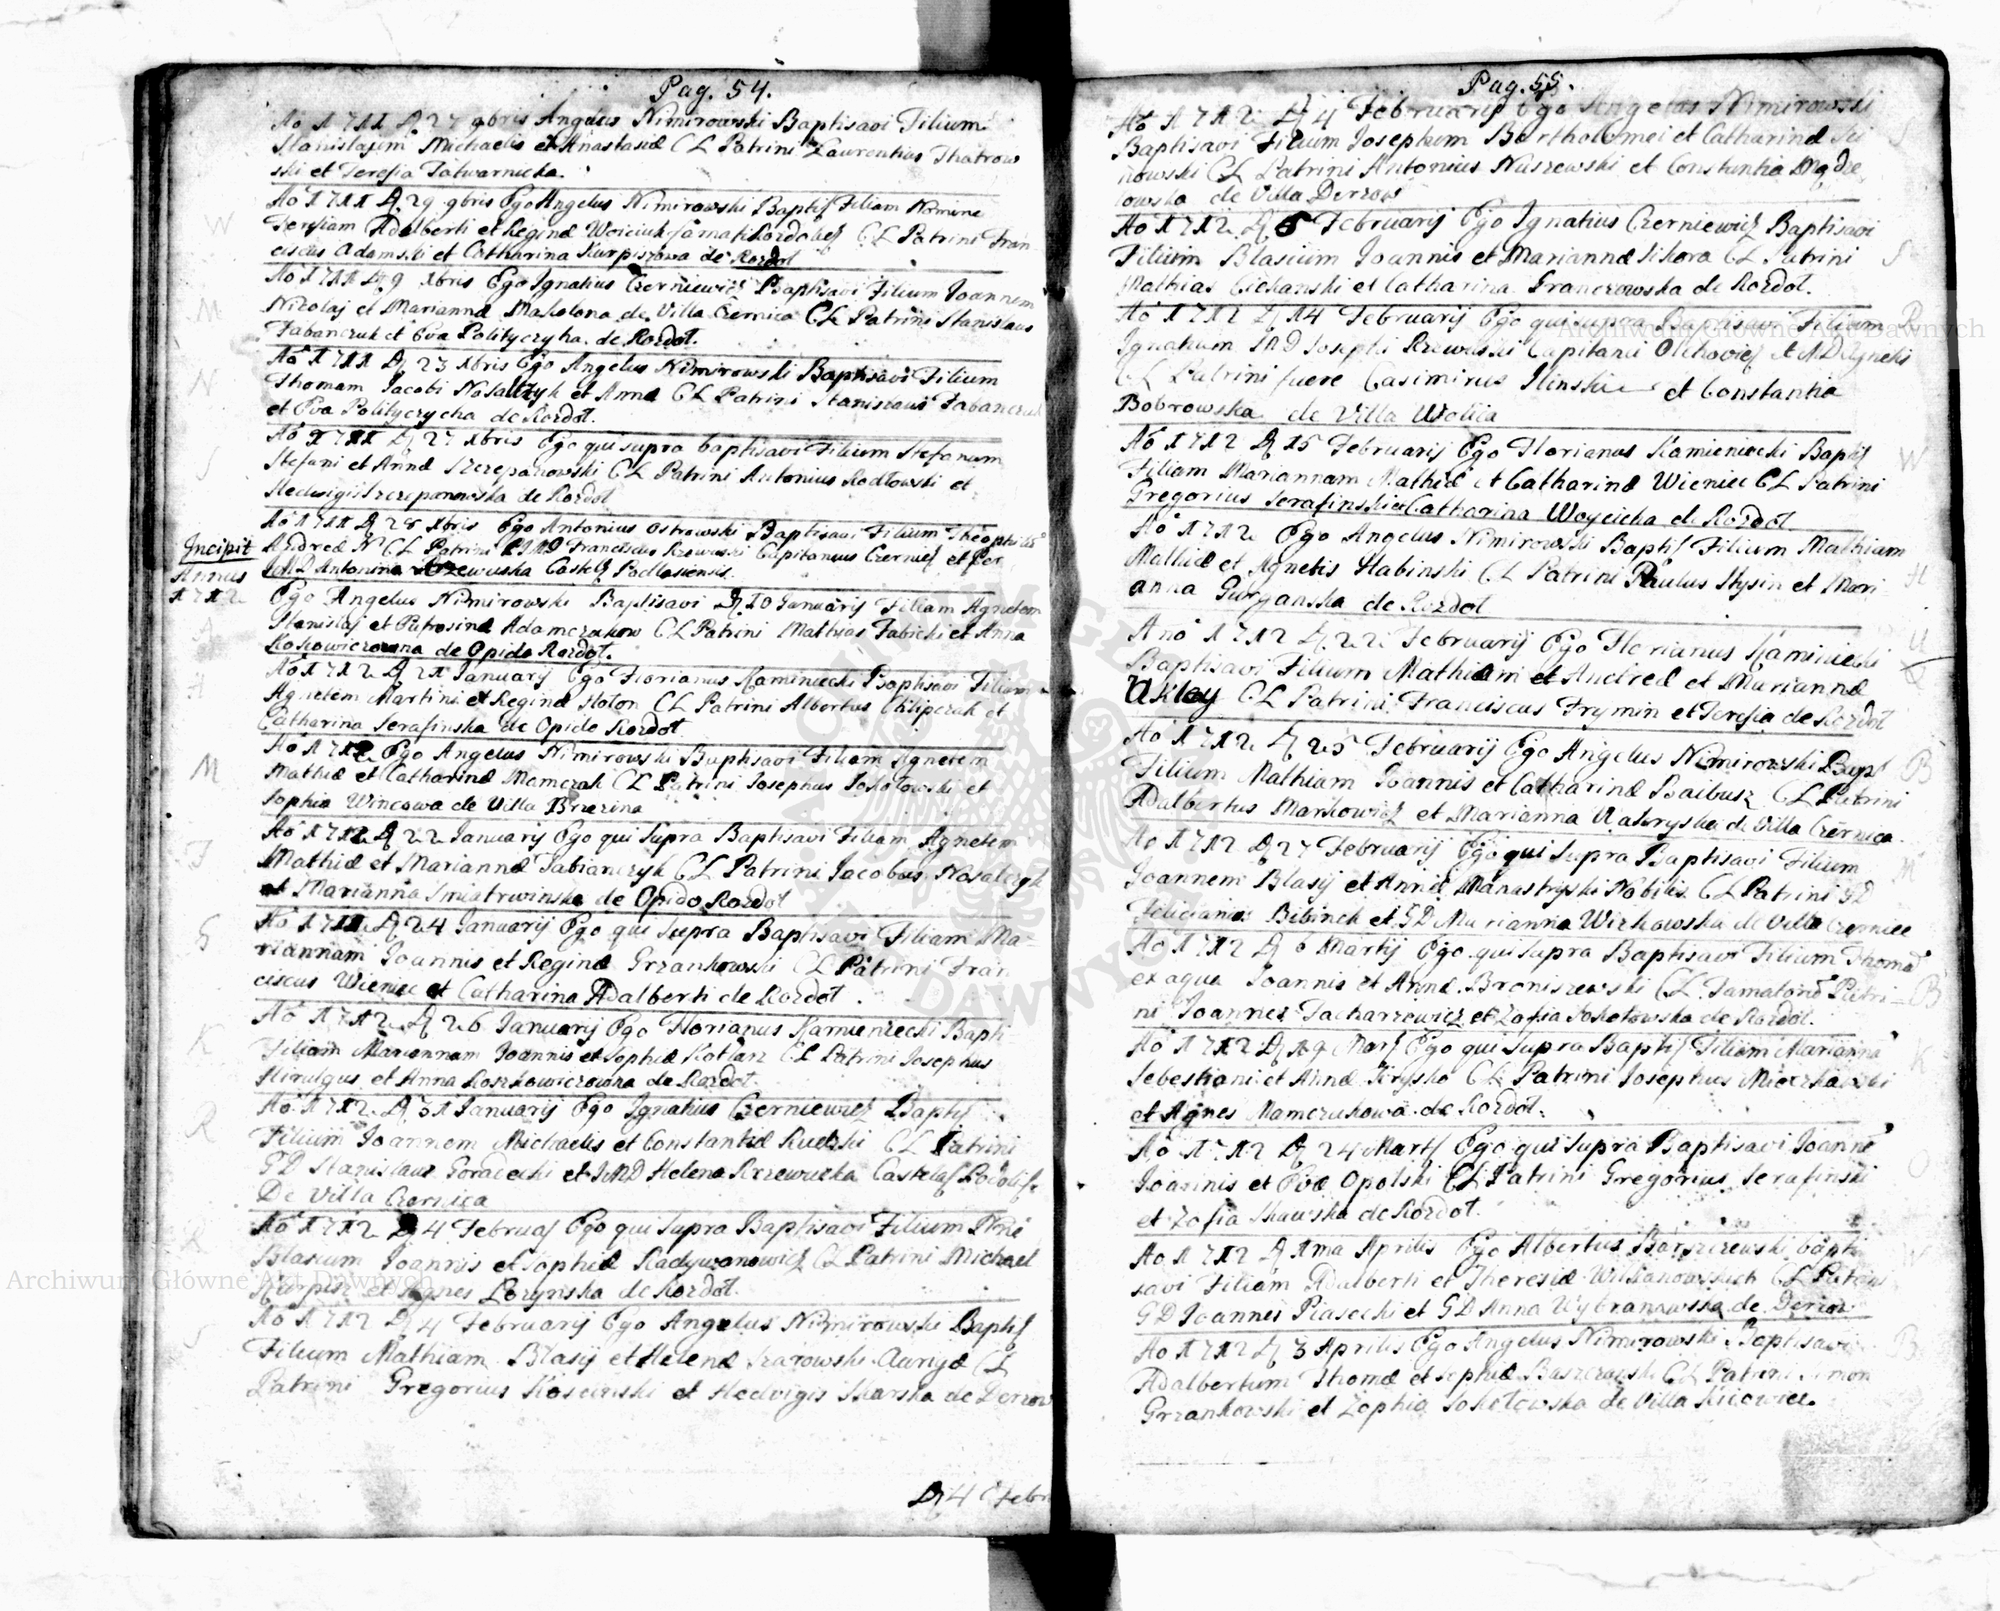 Pag. 54.
Ao 1711 D. 27 9bris Angelus Nimirowski Baptisavi Filium
Stanislaum Michaelis et Anastasiæ CL Patrini Laurentius Thatrow
ski et Teresia Tatwarnicka.
Ao 1711 D. 29 9bris Ego Angelus Nimirowski Baptis Filiam Nomine
Teresiam Adalberti et Reginæ Woiciuk CL Patrini Fran
ciscus Adamski et Catharina Kurpiszowa de Rozdot
Ao 1711 D. 9 Xbris Ego Ignatius Czerniewicz Baptisavi Filium Joannem
Nicolaj et Mariannæ Makolona de Villa Czernica CL Patrini Stanislaus
Fabanczuk et Eva Politycyha de Rozdot.
Ao 1711 D 23 Xbris Ego Angelus Nimirowski Baptisavi Filium
Thomam Jacobi Nosalczyk et Annæ CL Patrini Stanislaus Fabanczuk
et Eva Politycrycha de Rozdot.
Ao 1711 D 27 Xbris Ego qui supra baptisavi Filium Stefanum
Stefani et Annæ Szczepanowski CL Patrini Antonius Rodtowski et
Hedwigis Szczepanowska de Rozdot
Ao 1711 D 28 Xbris Ego Antonius Ostrowski Baptisavi Filium Theophilu
Incipit
Andreæ N CL Patrini Franciscus Rzewuski Capitaneus Czernie et Per
Annus
Antonina Rzewuska Castel Podlasiensis.
1712
Ego Angelus Nimirowski Baptisavi D 10 Januarij Filiam Agnetem
Stanislaj et Petrosinæ Adamczukow CL Patrini Mathias Fabicki et Anna
A
Koskowiczowna de Opido Rozdot.
Ao 1712 D 21 Januarij Ego Florianus Kaminiecki Baptisavi Filiam
H
Agnetem Martini et Reginæ Hoton CL Patrini Albertus Chlipczak et
Catharina Serafinska de Opido Rozdot
Ao 1712 Ego Angelus Nimirowski Baptisavi Filiam Agnetem
M
Mathiæ et Catharinæ Mamczak CL Patrini Josephus Sokotowski et
Sophia Wincowa de Villa Brzezina
Ao 1712 D 22 Januarij Ego qui Supra Baptisavi Filiam Agnetem
Mathiæ et Mariannæ Fabianczyk CL Patrini Jacobus Nosalczyk
et Marianna Smiatrwinska de Opido Rozdot
Ao 1712 D 24 Januarij Ego qui Supra Baptisavi Filiam Ma-
G
riannam Joannis et Reginæ Grzankowski CL Patrini Fran
ciscus Wieniec et Catharina Adalberti de Rozdot.
Ao 1712 D 26 Januarij Ego Florianus Kamieniecki Bapti
K
Filiam Mariannam Joannis et Sophiæ Kotlarz CL Patrini Josephus
Hirulgus et Anna Koszkowiczowna de Rozdot.
Ao 1712 D 31 Januarij Ego Ignatius Czerniewicz Baptis
R
Filium Joannem Michaelis et Constantiæ Rudzki CL Patrini
GD Stanislaus Goracecki et Helena Rzewuska Castela
De Villa Czernica
Ao 1712 D 4 Februa Ego qui Supra Baptisavi Filium Nñe
R
Blasium Joannis et Sophiæ Radywonowicz CL Patrini Michael
Kurpisz et Agnes Lozynska de Rozdot.
Ao 1712 D 4 Februarij Ego Angelus Nimirowski Baptis
S
Filium Mathiam Blasij et Helenæ Szarowski Aurigæ CL
Patrini Gregorius Koscinski et Hedvigis Skarska de Derzow
D 4 Febr
Pag. 55.
Ao 1712 D 4 Februarij Ego Angelus Nimirowski
Baptisavi Filium Josephum Bartholomei et Catharinæ
nowski CL Patrini Antonius Nuszewski et Constantia Mądre
lowska de Villa Derzow
Ao 1712 D 5 Februarij Ego Ignatius Czerniewicz Baptisavi
Filium Blasium Joannis et Mariannæ Sikora CL Patrini
S
Mathias Cichanski et Catharina Granczowska de Rozdot.
Ao 1712 D 14 Februarij Ego qui supra Baptisavi Filium
R
Ignatium Josephi Rzewuski Capitanei Olchovie et Agnetis
CL Patrini fuere Casimirus Ilinski et Constantia
Bobrowska de Villa Wolica
Ao 1712 D 15 Februarij Ego Florianus Kamieniecki Baptis
W
Filiam Mariannam Mathiæ et Catharinæ Wieniec CL Patrini
Gregorius Serafinski et Catharina Woycicka de Rozdot
Ao 1712 Ego Angelus Nimirowski Baptis Filium Mathiam
H
Mathiæ et Agnetis Habinski CL Patrini Paulus Hysin et Mari-
anna Gurganska de Rozdot
Ano 1712 D 22 Februarij Ego Florianus Kaminiecki
U
Baptisavi Filium Mathiam et Andreæ et Mariannæ
Ukley CL Patrini Franciscus Frymin et Teresia de Rozdot
Ao 1712 D 25 Februarij Ego Angelus Nimirowski Bapt
B
Filium Mathiam Joannis et Catharinæ Baibusz CL Patrini
Adalbertus Markowicz et Marianna Walzryska de Villa Czernica.
Ao 1712 D 27 Februarij Ego qui Supra Baptisavi Filium
M
Joannem Blasij et Annæ Manastryski Nobilis CL Patrini GD
Felicianus Bibinek et GD Marianna Wirkowska de Villa Czernice
Ao 1712 D 6 Martij Ego qui supra Baptisavi Filium Thoma
ex aqua Joannis et Annæ Broniszewski CL Famatorum Patri-
B
ni Joannes Tacharzewicz et Zofia Sokotowska de Rozdot.
Ao 1712 D 19 Mar Ego qui Supra Baptis Filiam Marianna
K
Sebestiani et Annæ Krysko CL Patrini Josephus Mioczkowski
et Agnes Mamczukowa de Rozdot.
Ao 1712 D 24 Mart Ego qui Supra Baptisavi Joanne
O
Joannis et Evæ Opolski CL Patrini Gregorius Serafinski
et Zofia Skawska de Rozdot.
Ao 1712 D 1ma Aprilis Ego Albertus Barszczewski bapti
savi Filiam Adalberti et Theresiæ Wilkanowskich CL Patrini
GD Joannes Piasecki et GD Anna Wybranowska de Derzow
Ao 1712 D 3 Aprilis Ego Angelus Nimirowski Baptisavi
B
Adalbertum Thomæ et Sophiæ Baszczanski CL Patrini Simon
Grzankowski et Zophia Sokotowska de Villa Kijowiec.
Archiwum Główne Akt Dawnych
Archiwum Główne Akt Dawnych